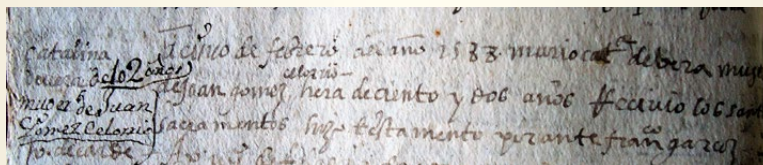 catalina
de vera de 102 años
muger de Juan
Gomez Celorio
A cinco de febrero del año 1588 murio catª de vera muge
de Joan gomez celorio hera de ciento y dos años Recivio los sant
sacramentos hizo testamento por ante franco garcia